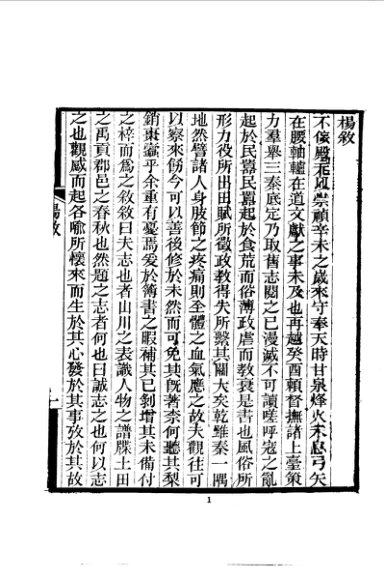 楊敘
不儍殿
風崇禎辛未之歲來守奉天時甘泉烽火未息弓矢
在腰軸轤在道文獻之事未及也再越癸酉賴督撫諸上臺策
力羣舉三秦底定乃取舊志閱之已漫滅不可讀嗟呼寇之亂
起於民囂民囂起於食荒而俗薄政虐而教衰是書也風俗所
形力役所出田賦所徵政教得失所繫其關大矣乾雖秦一隅
地然譬諸人身肢節之疼痛則全體之血氣應之故夫觀往可
以察來飭今可以善後修於未然而可免其旣著柰何聽其梨
銷棗蠹乎余重有憂焉爰於簿書之暇補其已剝增其未備付
之梓而爲之敘敘曰夫志也者山川之表識人物之譜牒土田
之禹貢郡邑之春秋也然題之志者何也曰誠志之也何以志
之也觀感而起各喻所懷來而生於其心發於其事攷於其故
楊敘
一
1